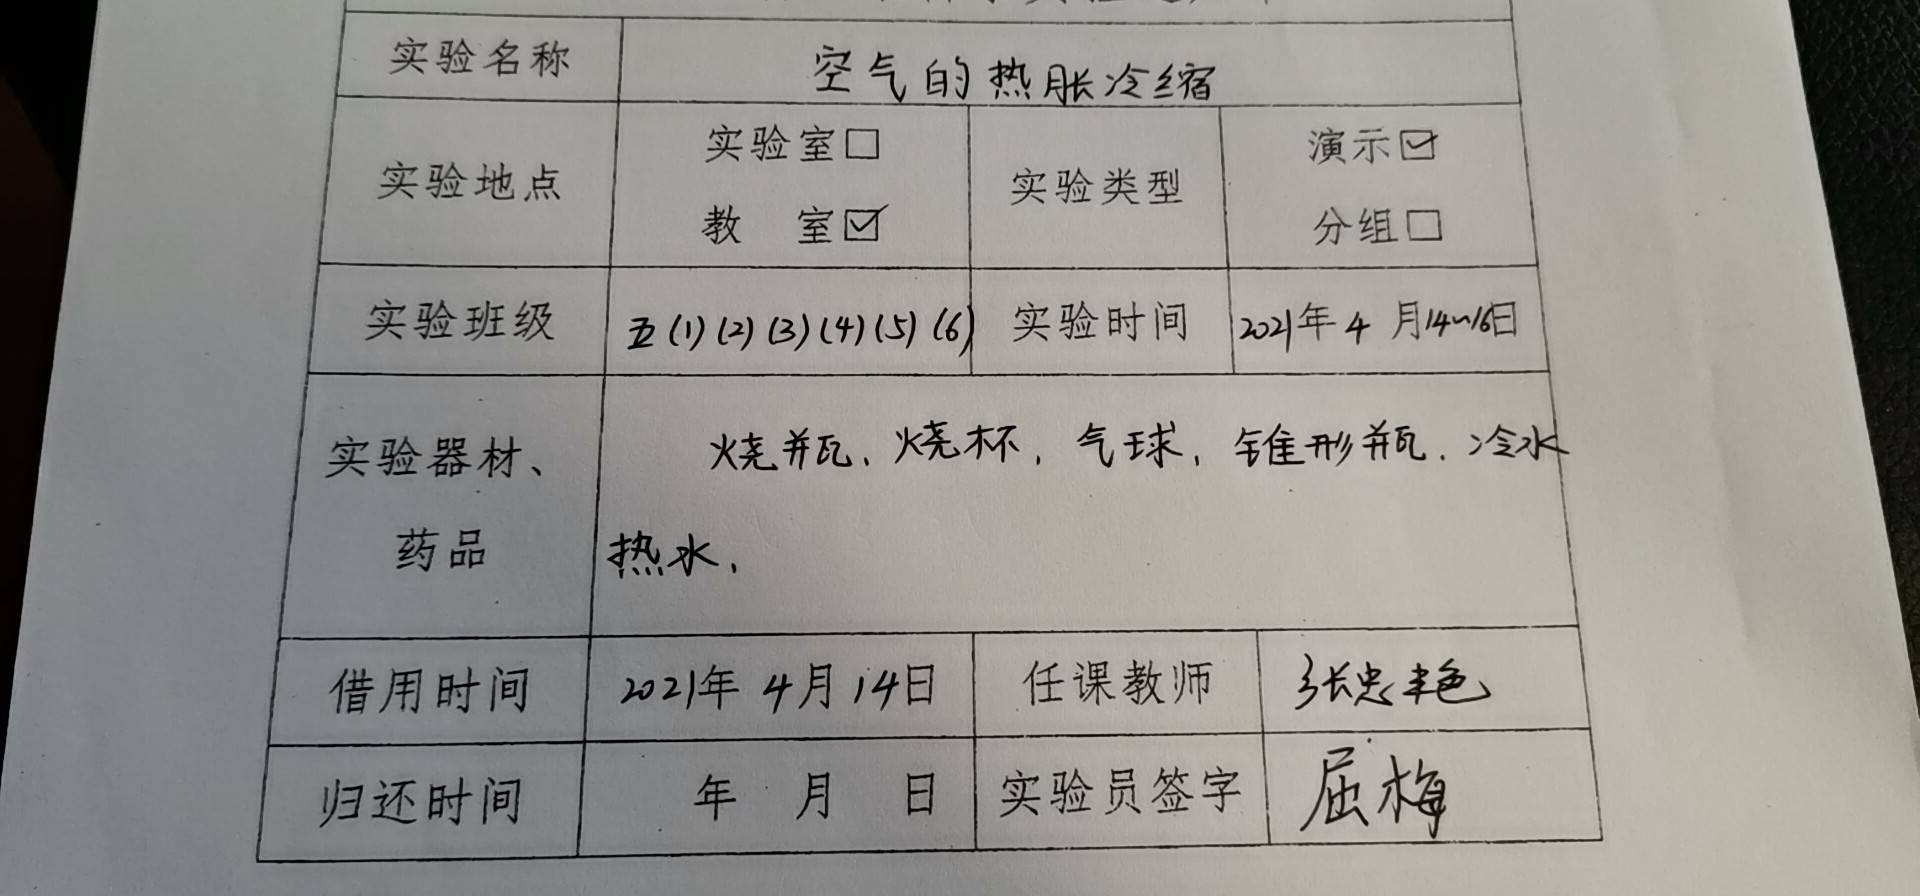 实验名称 空气的热胀冷缩
实验地点 实验室□ 教 室☑ 实验类型 演示☑ 分组□
实验班级 五(1)(2)(3)(4)(5)(6) 实验时间 2021年4月14~16日
实验器材、药品 烧瓶、烧杯、气球、锥形瓶、冷水
热水、
借用时间 2021年4月14日 任课教师 张忠艳
归还时间 年 月 日 实验员签字 屈梅